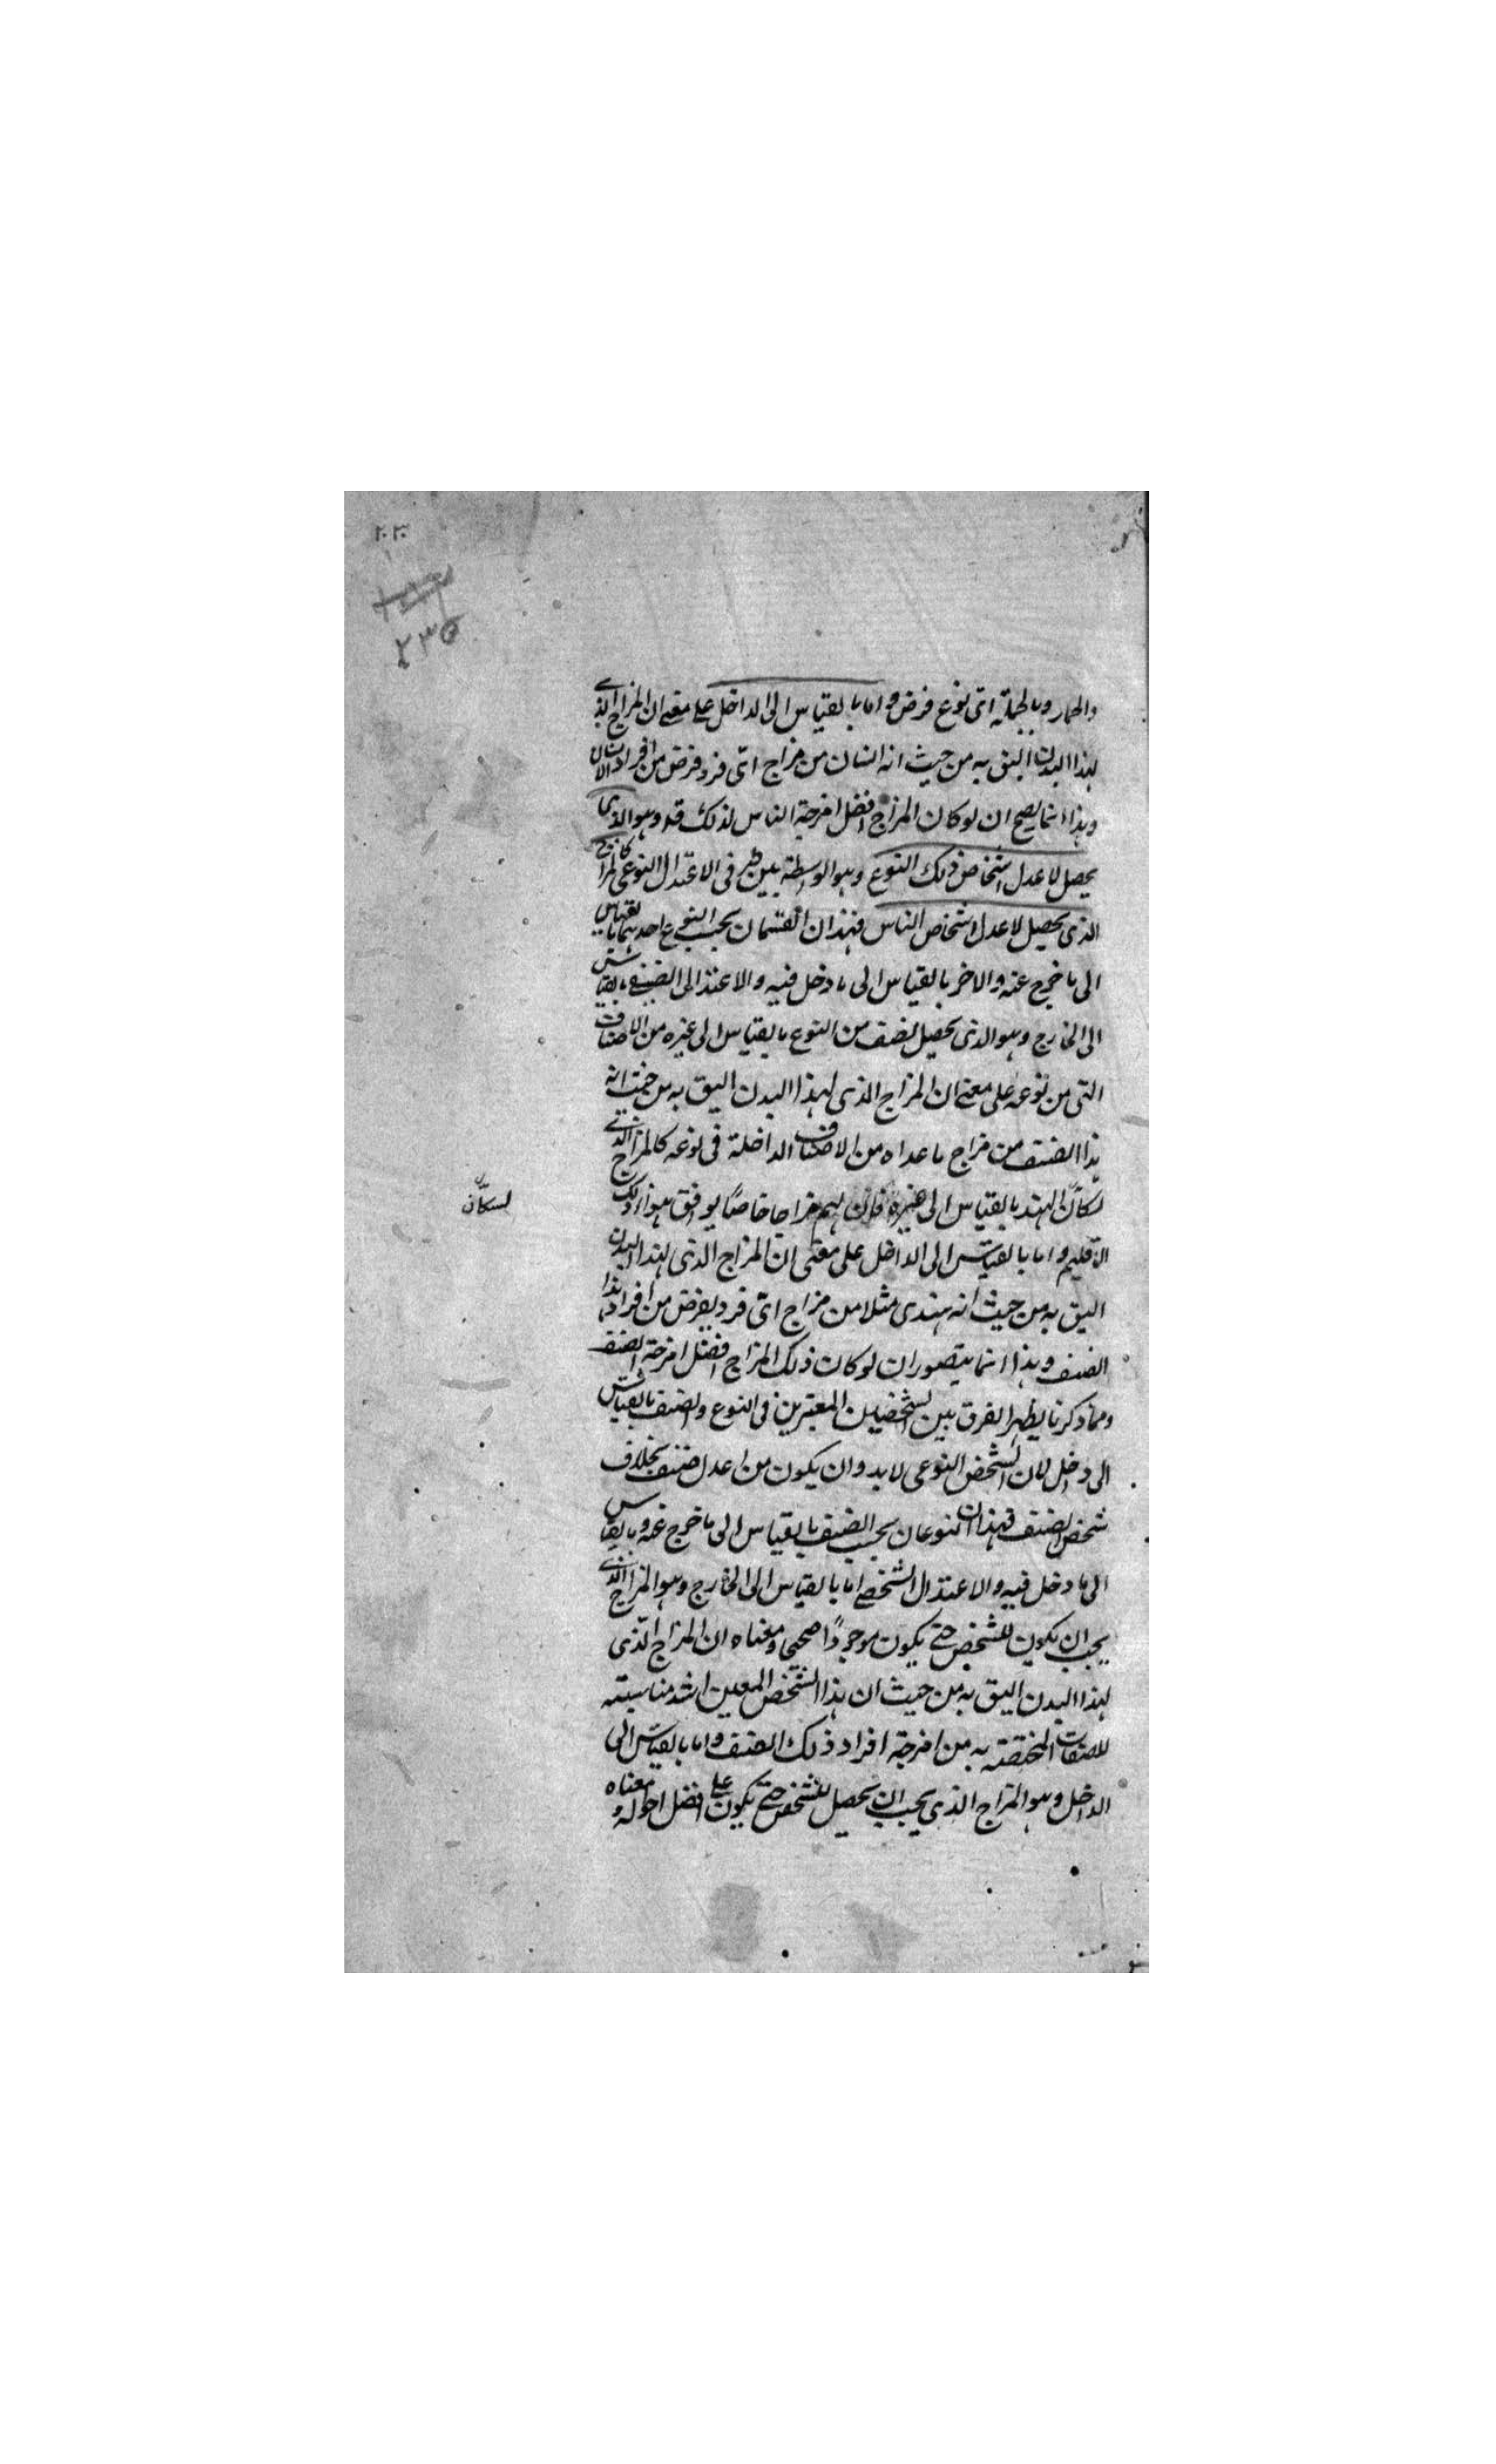 ٢٠٣
٢٣٥
والحمار وبالجملة اى نوع فرض واما بالقياس الى الداخل على معنى ان المزاج الذى
لهذا البدن اليق به من حيث انه انسان من مزاج اى فرد فرض من افراد الانسان
وهذا انما يصح ان لو كان المزاج افضل امزجة الناس لذلك قد وهو الذى
يحصل لاعدل اشخاص ذلك النوع وهو الواسطة بين طر فى الاعتدال النوعى كالمزاج
الذى يحصل لاعدل اشخاص الناس فهذان القسمان بحسب النوع احدهما بالقياس
الى ما خرج عنه والاخر بالقياس الى ما دخل فيه والاعتدال الصنفى بالقياس
الى الخارج وهو الذى يحصل لصنف من النوع بالقياس الى غيره من الاصناف
التى من نوعه على معنى ان المزاج الذى لهذا البدن اليق به من حيث انه
هذا الصنف من مزاج ما عداه من الاصناف الداخلة فى نوعه كالمزاج الذى
لسكان الهند بالقياس الى غيره فان لهم مزاجا خاصًا يوافق هواء ذلك
لسكّان
الاقليم واما بالقياس الى الداخل على معنى ان المزاج الذى لهذا البدن
اليق به من حيث انه هندى مثلا من مزاج اى فرد يفرض من افراد هذا
الصنف وهذا انما يتصور ان لو كان ذلك المزاج افضل امزجة الصنف
ومما ذكرنا يظهر الفرق بين الشخصين المعتبرين فى النوع والصنف بالقياس
الى داخل لان الشخص النوعى لا بد وان يكون من اعدل صنف بخلاف
شخص الصنف فهذان النوعان بحسب الصنف بالقياس الى ما خرج عنه وبالقياس
الى ما دخل فيه والاعتدال الشخصى اما بالقياس الى الخارج وهو المزاج الذى
يجب ان يكون للشخص حتى يكون موجودًا صحى ومعناه ان المزاج الذى
لهذا البدن اليق به من حيث ان هذا الشخص المعين اشد مناسبته
للصفات المختصة به من امزجة افراد ذلك الصنف واما بالقياس الى
الداخل وهو المزاج الذى يجب ان يحصل للشخص حتى يكون على افضل احواله ومعناه